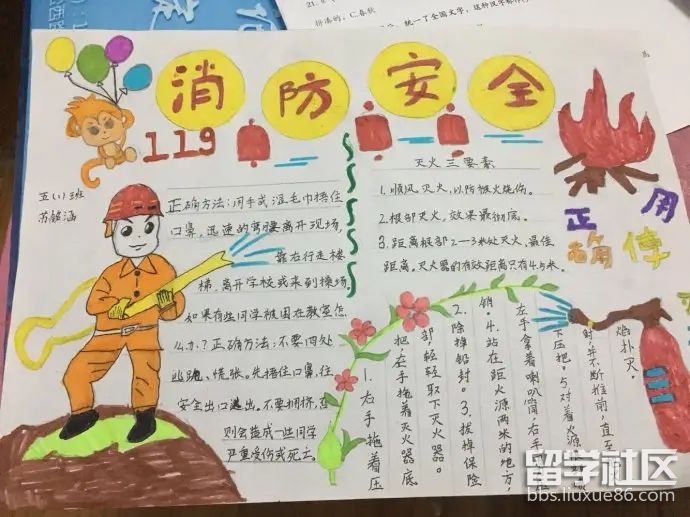 消防安全
119
五(1)班
苏馆涵
正确方法:用手或湿毛巾捂住
口鼻,迅速的弯腰离开现场,
靠右行走楼
梯,离开学校或来到操场
如果有些同学被困在教室怎
么办?正确方法:不要四处
逃跑、慌张。先捂住口鼻,往
安全出口逃出。不要拥挤,否
则会造成一些同学
严重受伤或死亡
灭火三要素
1.顺风灭火,以防被火烧伤。
2.根部灭火,效果最彻底。
3.距离根部2一3米处灭火,最佳
距离。灭火器的有效距离只有4.5米。
正确
用
使
1.右手拖着压
把,左手拖着灭火器底
部,轻轻取下灭火器。
2.除掉铅封。3.拔掉保险
销。4.站在距火源两米的地方,
左手拿着喇叭筒,右手
下压把。5.对着火源
射,并不断推前,直
焰扑灭。
留学社区
bbs.liuxue86.com